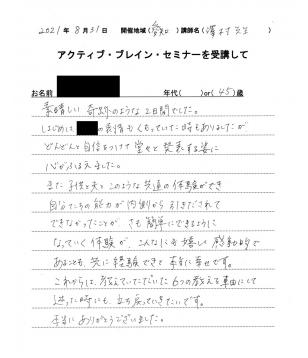 2021年8月31日 開催地域(愛知)講師名(澤村 )
アクティブ・ブレイン・セミナーを受講して
お名前 年代( )or(45)歳
素晴しい奇跡のような2日間でした。
はじめは の表情もくもっていた時もありましたが
どんどんと自信をつけて堂々と発表する姿に
心がふるえました。
また子供と夫とこのような共通の体験ができ
自分たちの能力が内側から引きだされて
できなかったことが、さも簡単にできるように
なっていく体験が、こんなにも嬉しく感動的で
あることも、共に経験できて本当に幸せです。
これからは、教えていただいた6つの教える理由にして
迷った時にも、立ち戻っていきたいです。
本当にありがとうございました。